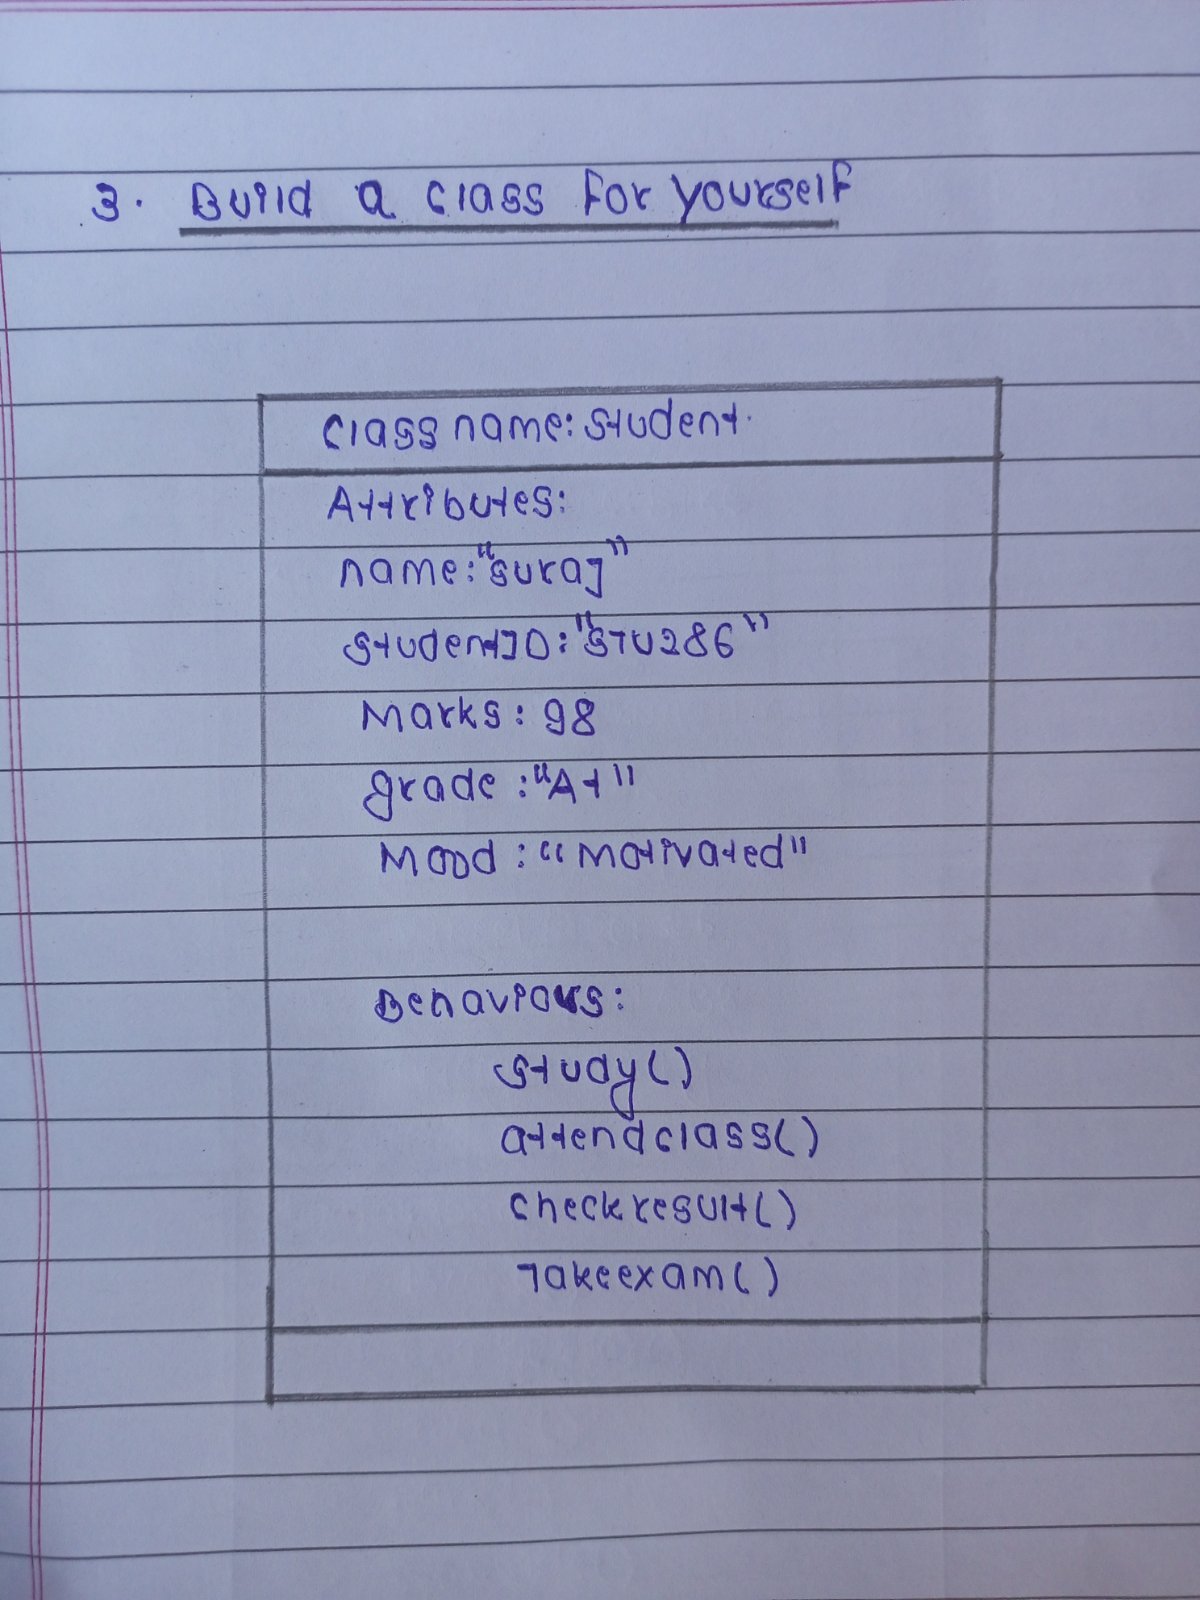 3. Build a class for yourself
class name: student.
Attributes:
name: "suraj"
studentID: "STU286"
Marks: 98
grade: "A+"
Mood: "Motivated"
Behaviours:
study()
attendclass()
checkresult()
Takeexam()